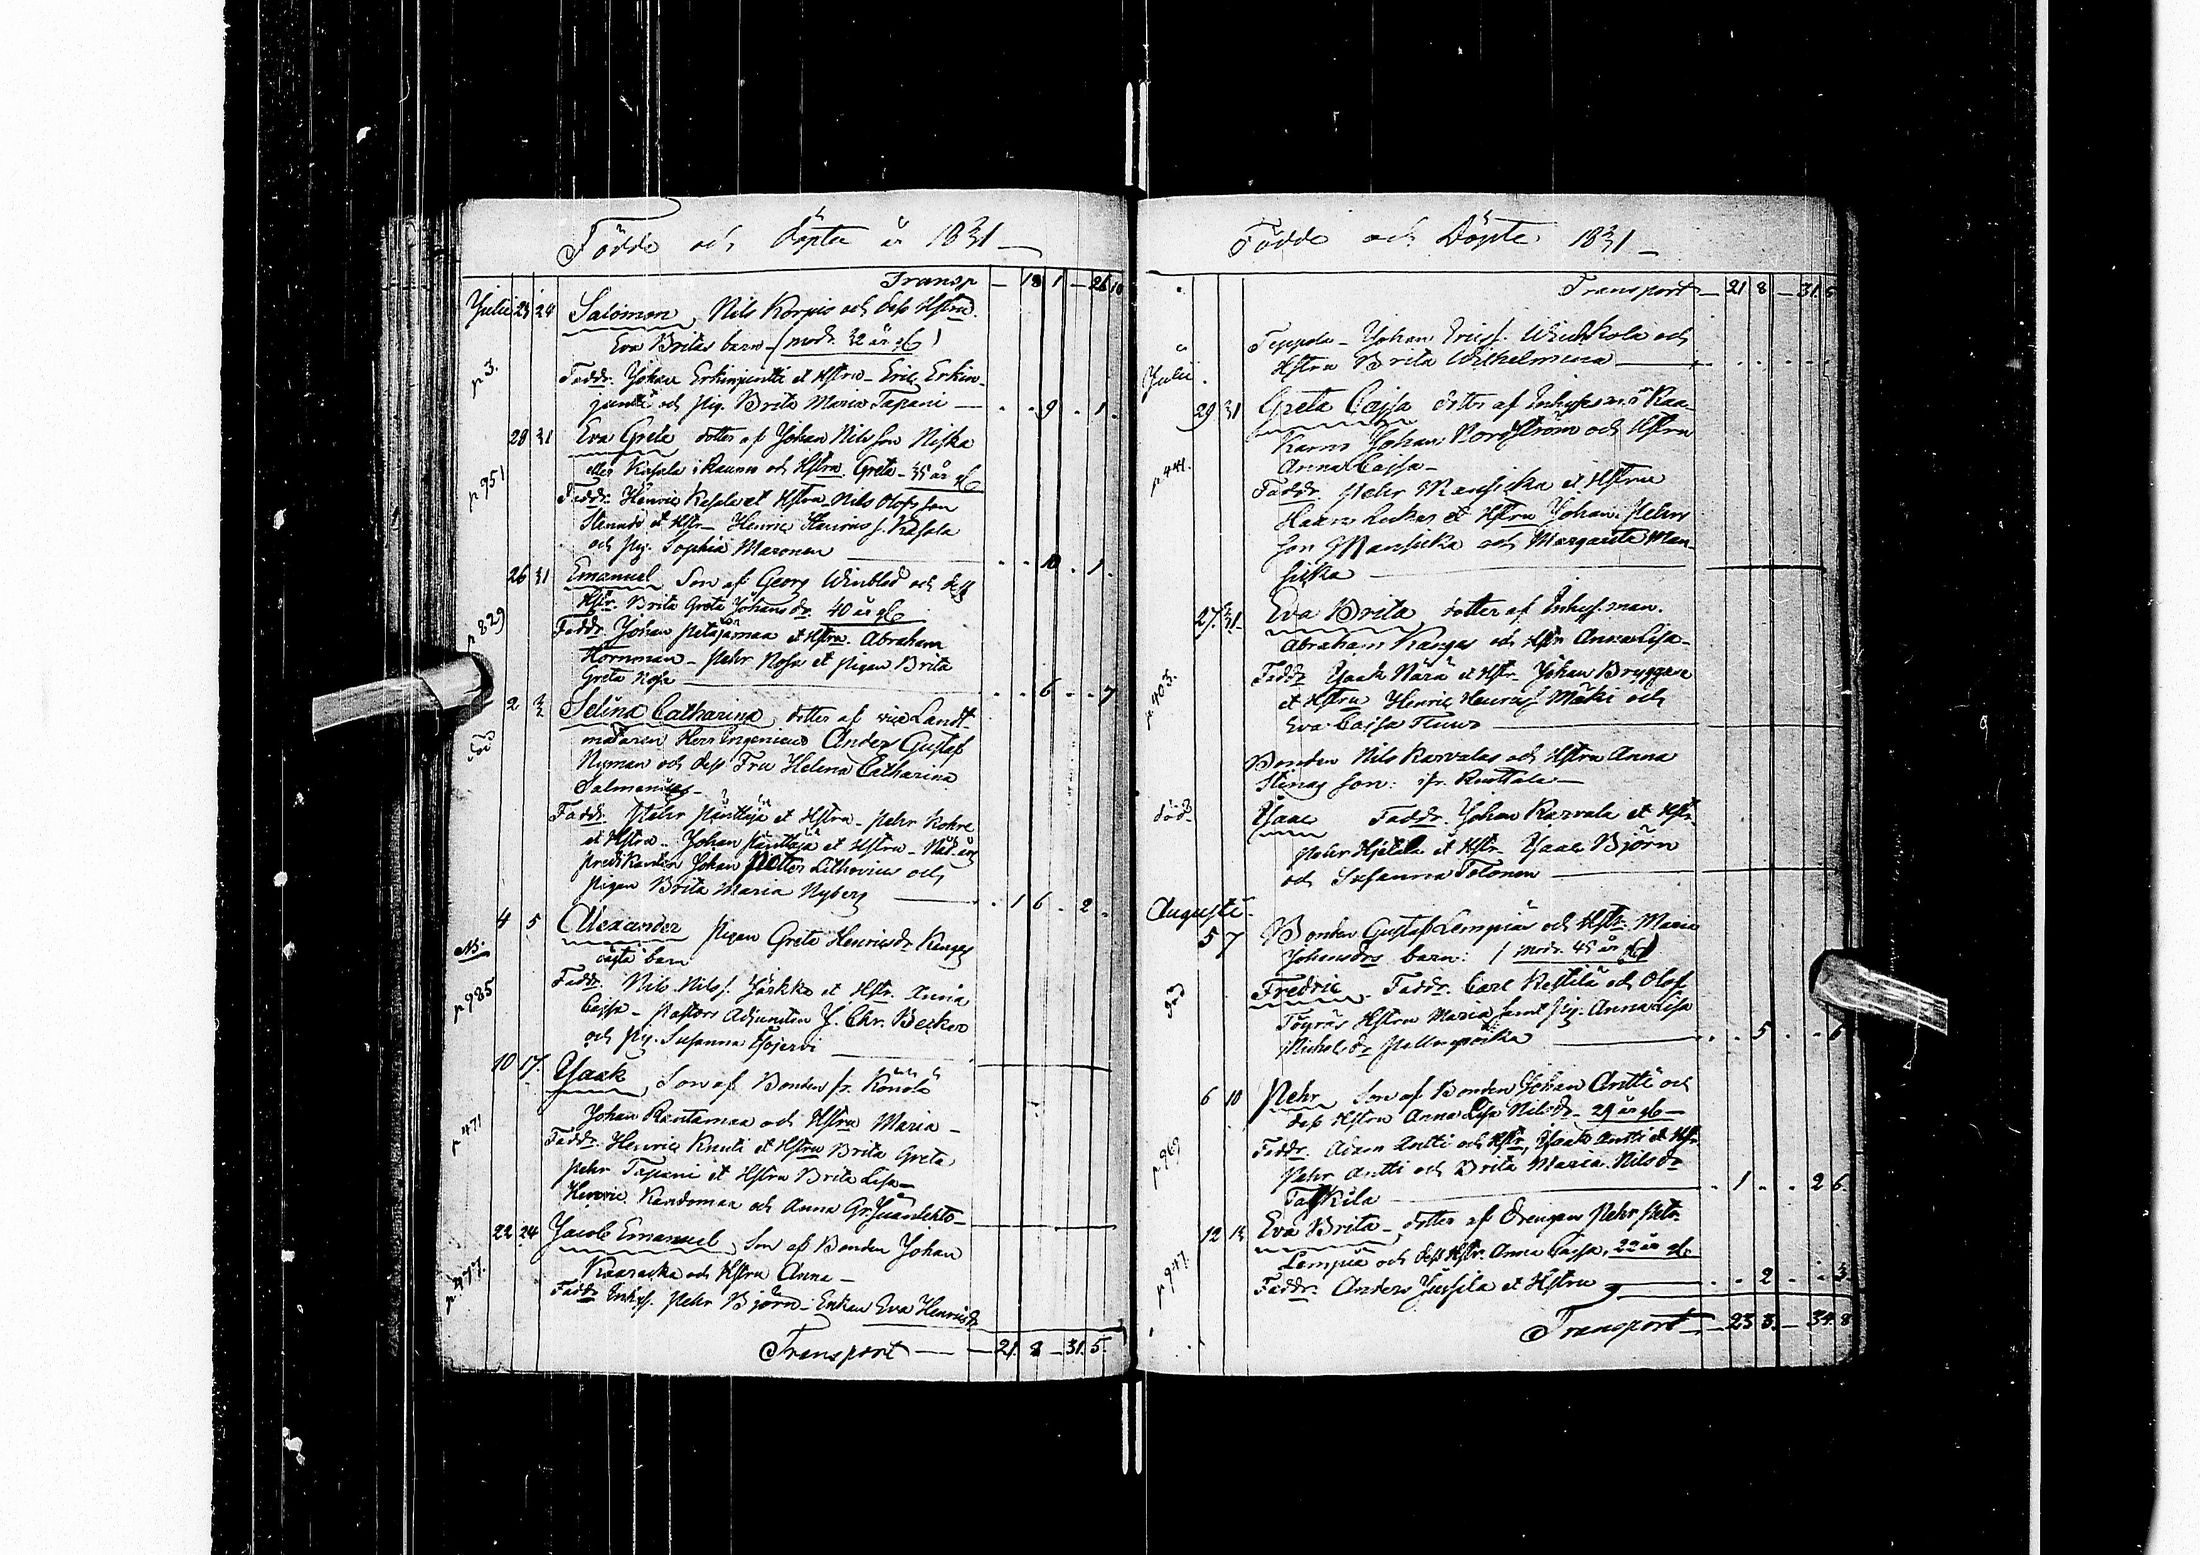 Födde och döpte år 1831
Transp — 18 1 — 26 10
Julii 23 24 Salomon, Nils Korpis och dess Hstru
Eva Britas barn — (modr. 32 år gl)
p 3. Faddr. Johan Erkinjuntti et Hstru — Eric Erkin-
juntti och pig. Brita Maria Tapani — 9 1
28 31 Eva Greta dotter af Johan Nilsson Niska
eller Kasala i Raumo och Hstru Greta — 35 år gl
p 951 Faddr. Henric Kasala et Hstru Nils Olofsson
et Hstr — Henric Henricss. Kasala
och pig. Sophia Maronen — 10 1
26 31 Emanuel Son af Georg Winblad och dess
Hstr. Brita Greta Johansdr. 40 år gl
p 829 Faddr. Johan Petäjämaa et Hstru Abraham
Hornman — Pehr Rosa et pigan Brita
Greta Rosa — 6 7
2 Selina Catharina, dotter af vice Landt-
mätaren Herr Ingenieur Anders Gustaf
Nyman och dess Fru Helena Catharina
Salmenius —
Faddr. Pehr Pänttäjä et Hstru — Pehr Kohre
et Hstru — Johan Pänttäjä et Hstru — Nåd. års
predikanten Johan Petter Lithovius och
pigan Brita Maria Nyberg — 1 6 2
4 5 Alexander pigan Greta Henricsdr. Kangas
oägta barn
NB.
p 985 Faddr. Nils Nilss. Jarkko et Hstr. Anna
Cajsa — Pastors Adjuncten J. Chr. Becker
och pig. Susanna
10 17. Isaak, Son af Bonden fr. Könölä
Johan Rantamaa och Hstru Maria —
p 471 Faddr. Henric Knuti et Hstru Brita Greta,
Pehr Tapani et Hstru Brita Lisa —
Henric Kandomaa och Anna Gr. Juanlehto —
22 24 Jacob Emanuel, Son af Bonden Johan
Kaaracka och Hstru Anna —
p. 477. Faddr. Inhys. Pehr Björn — Enkan Eva Henricsdr.
Transport — 21. 8 — 31. 5.
Födde och Döpte 1831 —
Transport — 21 8 — 31. 5
Teppola — Johan Ericss. och
Hstru Brita Wilhelmina —
Julii.
29 31 Greta Cajsa dotter af Inhyses m. i Raa-
Karns Johan Nordström och Hstru
Anna Cajsa —
p 441. Faddr. Pehr Mansicka et Hstru
et Hstru Johan Pehrs
son Mansicka och Margareta Man-
sicka
27. 31. Eva Brita dotter af Inhys. man.
Abraham Kangas och Hstr. Anna Lisa —
p 403. Faddr. Isaak Närä et Hstr. Johan Bryggare
et Hstru Henric Henricss. Mäki och
Eva Cajsa
Bonden Nils Karvalas och Hstru Anna
Stinas son: fr. Ruottala —
död Isaac Faddr. Johan Karvala et Hstr.
Pehr Hjetala et Hstr. Isaac Björn
och Susanna Tolonen —
Augusti.
5 7 Bonden Gustaf Lempiäs och Hstr. Maria
Johansdrs barn: (modr. 45 år gl)
Fredric. Faddr. Carl Kestilä och Olof
Töyräs Hstru Maria samt pig. Anna Lisa
Michelsdr. — 5 6
6 10 Pehr Son af Bonden Johan Antti och
dess Hstru Anna Lisa Nilsdr. 29 år gl —
p 969 Faddr. Adam Antti och Hstr. Isaak Antti et Hstr.
Pehr Antti och Brita Maria Nilsdr
Taskila — 1 2 6.
12 14 Eva Brita — dotter af Drengen Pehr Petr.
Lempiä och dess Hstr. Anna Cajsa, 22 år gl.
p 947. Faddr. Anders Jussila et Hstru — 2 3.
Transport — 23 3. — 34. 8